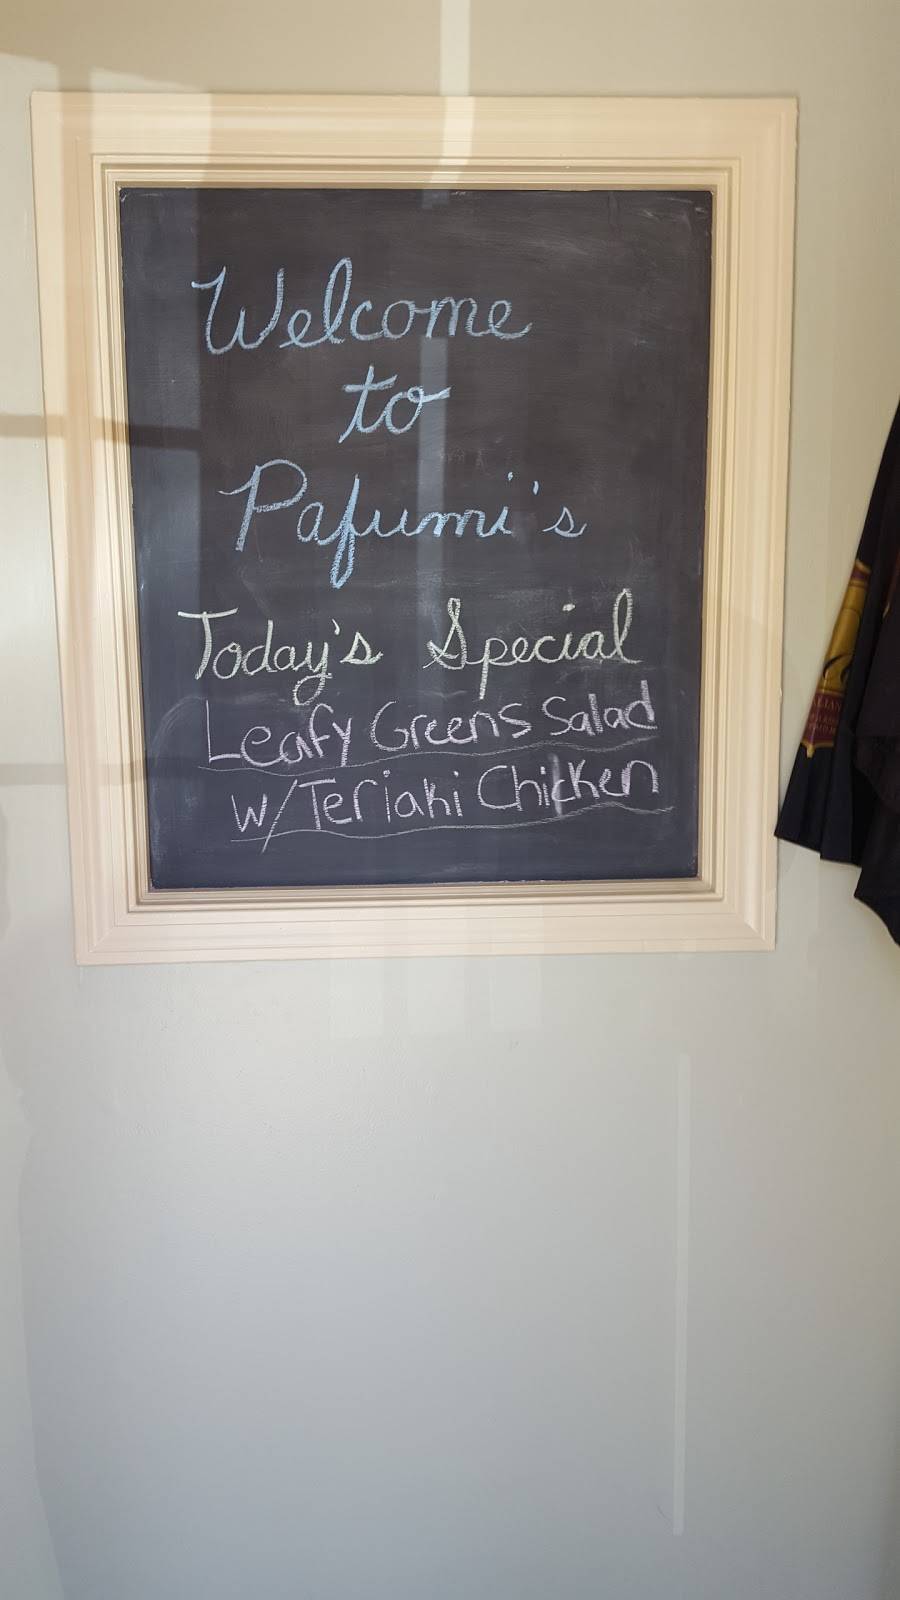 Welcome
to
Pafumi's
Today's Special
Leafy Greens Salad
w/Teriaki Chicken